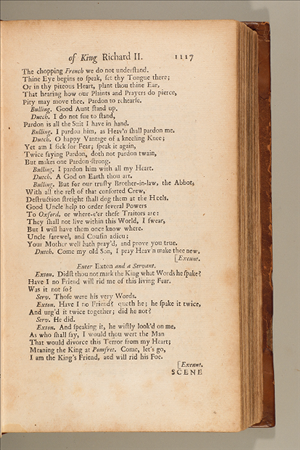 of King Richard II. 1117
The chopping French we do not understand.
Thine Eye begins to speak, set thy Tongue there;
Or in thy piteous Heart, plant thou thine Ear,
That hearing how our Plaints and Prayers do pierce,
Pity may move thee, Pardon to rehearse.
Bulling. Good Aunt stand up.
Dutch. I do not sue to stand,
Pardon is all the Suit I have in hand.
Bulling. I pardon him, as Heav'n shall pardon me.
Dutch. O happy Vantage of a kneeling Knee;
Yet am I sick for Fear; speak it again,
Twice saying Pardon, doth not pardon twain,
But makes one Pardon strong.
Bulling. I pardon him with all my Heart.
Dutch. A God on Earth thou art.
Bulling. But for our trusty Brother-in-law, the Abbot,
With all the rest of that consorted Crew,
Destruction streight shall dog them at the Heels.
Good Uncle help to order several Powers
To Oxford, or where-e'er these Traitors are:
They shall not live within this World, I swear,
But I will have them once know where.
Uncle farewel, and Cousin adieu;
Your Mother well hath pray'd, and prove you true.
Dutch. Come my old Son, I pray Heav'n make thee new.
[Exeunt.
Enter Exton and a Servant.
Exton. Didst thou not mark the King what Words he spake?
Have I no Friend will rid me of this living Fear.
Was it not so?
Serv. Those were his very Words.
Exton. Have I no Friend? quoth he; he spake it twice,
And urg'd it twice together; did he not?
Serv. He did.
Exton. And speaking it, he wistly look'd on me,
As who shall say, I would thou wert the Man
That would divorce this Terror from my Heart;
Meaning the King at Pomfret. Come, let's go,
I am the King's Friend, and will rid his Foe.
[Exeunt.
SCENE